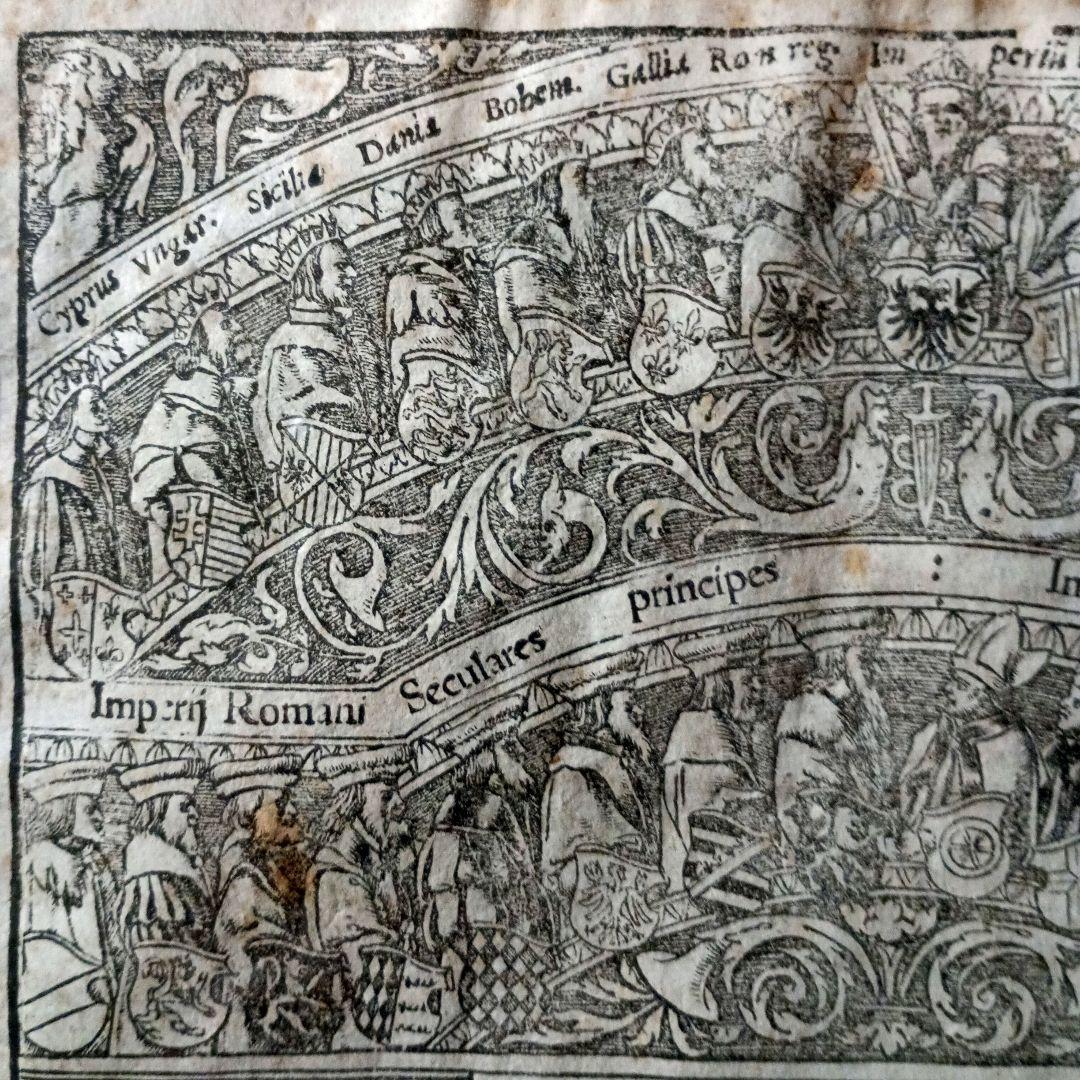 Cyprus Vngar. Sicilia Dania Bohem. Gallia Rom reg. Im periū
Imperij Romani Seculares principes :